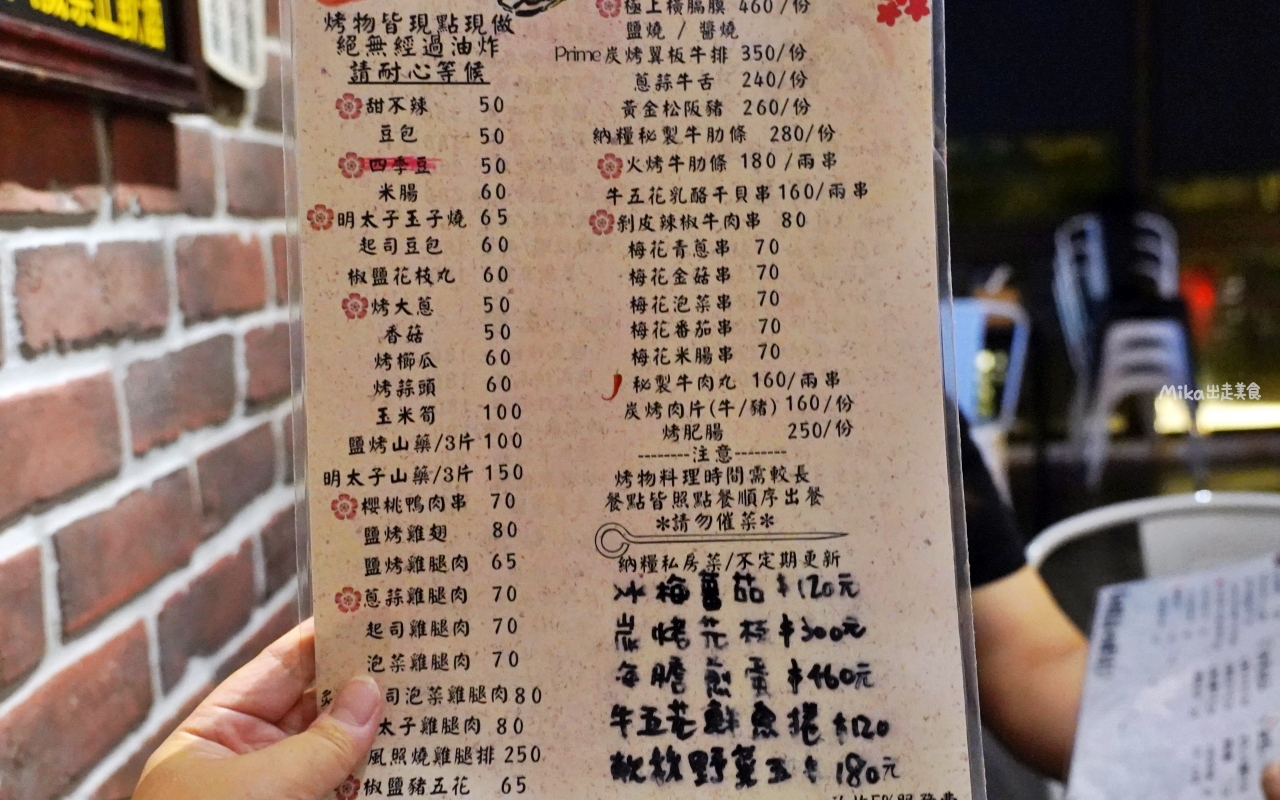 烤物皆現點現做
絕無經過油炸
請耐心等候
甜不辣 50
豆包 50
四季豆 50
米腸 60
明太子玉子燒 65
起司豆包 60
椒鹽花枝丸 60
烤大蔥 50
香菇 50
烤櫛瓜 60
烤蒜頭 60
玉米筍 100
鹽烤山藥/3片 100
明太子山藥/3片 150
櫻桃鴨肉串 70
鹽烤雞翅 80
鹽烤雞腿肉 65
蔥蒜雞腿肉 70
起司雞腿肉 70
泡菜雞腿肉 70
司泡菜雞腿肉 80
太子雞腿肉 80
風照燒雞腿排 250
椒鹽豬五花 65
極上橫膈膜 460/份
鹽燒 / 醬燒
Prime炭烤翼板牛排 350/份
蔥蒜牛舌 240/份
黃金松阪豬 260/份
納糧秘製牛肋條 280/份
火烤牛肋條 180/兩串
牛五花乳酪干貝串 160/兩串
剝皮辣椒牛肉串 80
梅花青蔥串 70
梅花金菇串 70
梅花泡菜串 70
梅花番茄串 70
梅花米腸串 70
秘製牛肉丸 160/兩串
炭烤肉片(牛/豬) 160/份
烤肥腸 250/份
--------注意--------
烤物料理時間需較長
餐點皆照點餐順序出餐
*請勿催菜*
納糧私房菜/不定期更新
冰梅蕃茄 $120元
炭烤花枝 $300元
海膽煎蛋 $460元
牛五花鮮魚捲 $120
軟絲野菜玉 $180元
Mika出走美食